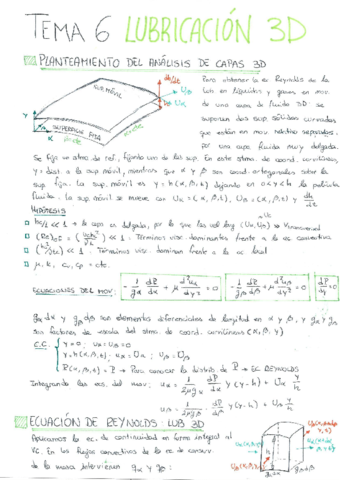 TEMA 6 LUBRICACIÓN 3D
PLANTEAMIENTO DEL ANÁLISIS DE CAPAS 3D
Para obtener la ec Reynolds de la
lub en líquidos y gases en mov.
de una capa de fluido 3D se
suponen dos sup. sólidas curvadas
que están en mov. relativo separadas
por una capa fluida muy delgada.
SUP MÓVIL
SUPERFICIE FIJA
Se fija un stmo de ref. fijando una de las sup. En este stmo. de coord. curvilíneas,
y = dist a la sup móvil, mientras que α y β son coord. ortogonales sobre la
sup fija. La sup. móvil es y = h(α, β, t) dejando en 0≤y≤h la película
fluida. La sup móvil se mueve con Uα(α, β, t), Uβ(α, β, t) y dh/dt
HIPÓTESIS
h0/L << 1 → la capa es delgada, por lo que las vel long (Uα, Uβ) >> Vtransversal
<< 1. Términos visc. dominantes frente a la ec convectiva
<< 1. Términos visc dominan frente a la ec local
μ, k, cv, cp = cte.
ECUACIONES DEL MOV:
gα dα y gβ dβ son elementos diferenciales de longitud en α y β, y gα y gβ
son factores de escala del stmo de coord. curvilíneas (α, β, y)
C.C: y = 0; uα = Uβ = 0
y = h(α, β, t); uα = Uα; uβ = Uβ
P(α, β, t) = ? → Para conocer la distrib de P → EC REYNOLDS
Integrando las ecs. del mov: uα = 1/2μgα dP/dα y(y-h) + Uα y/h
uβ = 1/2μgβ dP/dβ y(y-h) + Uβ y/h
ECUACIÓN DE REYNOLDS: LUB 3D
Aplicamos la ec. de continuidad en forma integral al
VC. En los flujos convectivos de la ec de conserv.
de la masa intervienen gα y gβ: